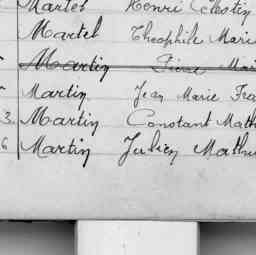 Martel Henri Célestin
Martel Theophile Marie
Martin Pierre Mari
Martin Jean Marie Fra
3. Martin Constant Math
6 Martin Julien Mathu